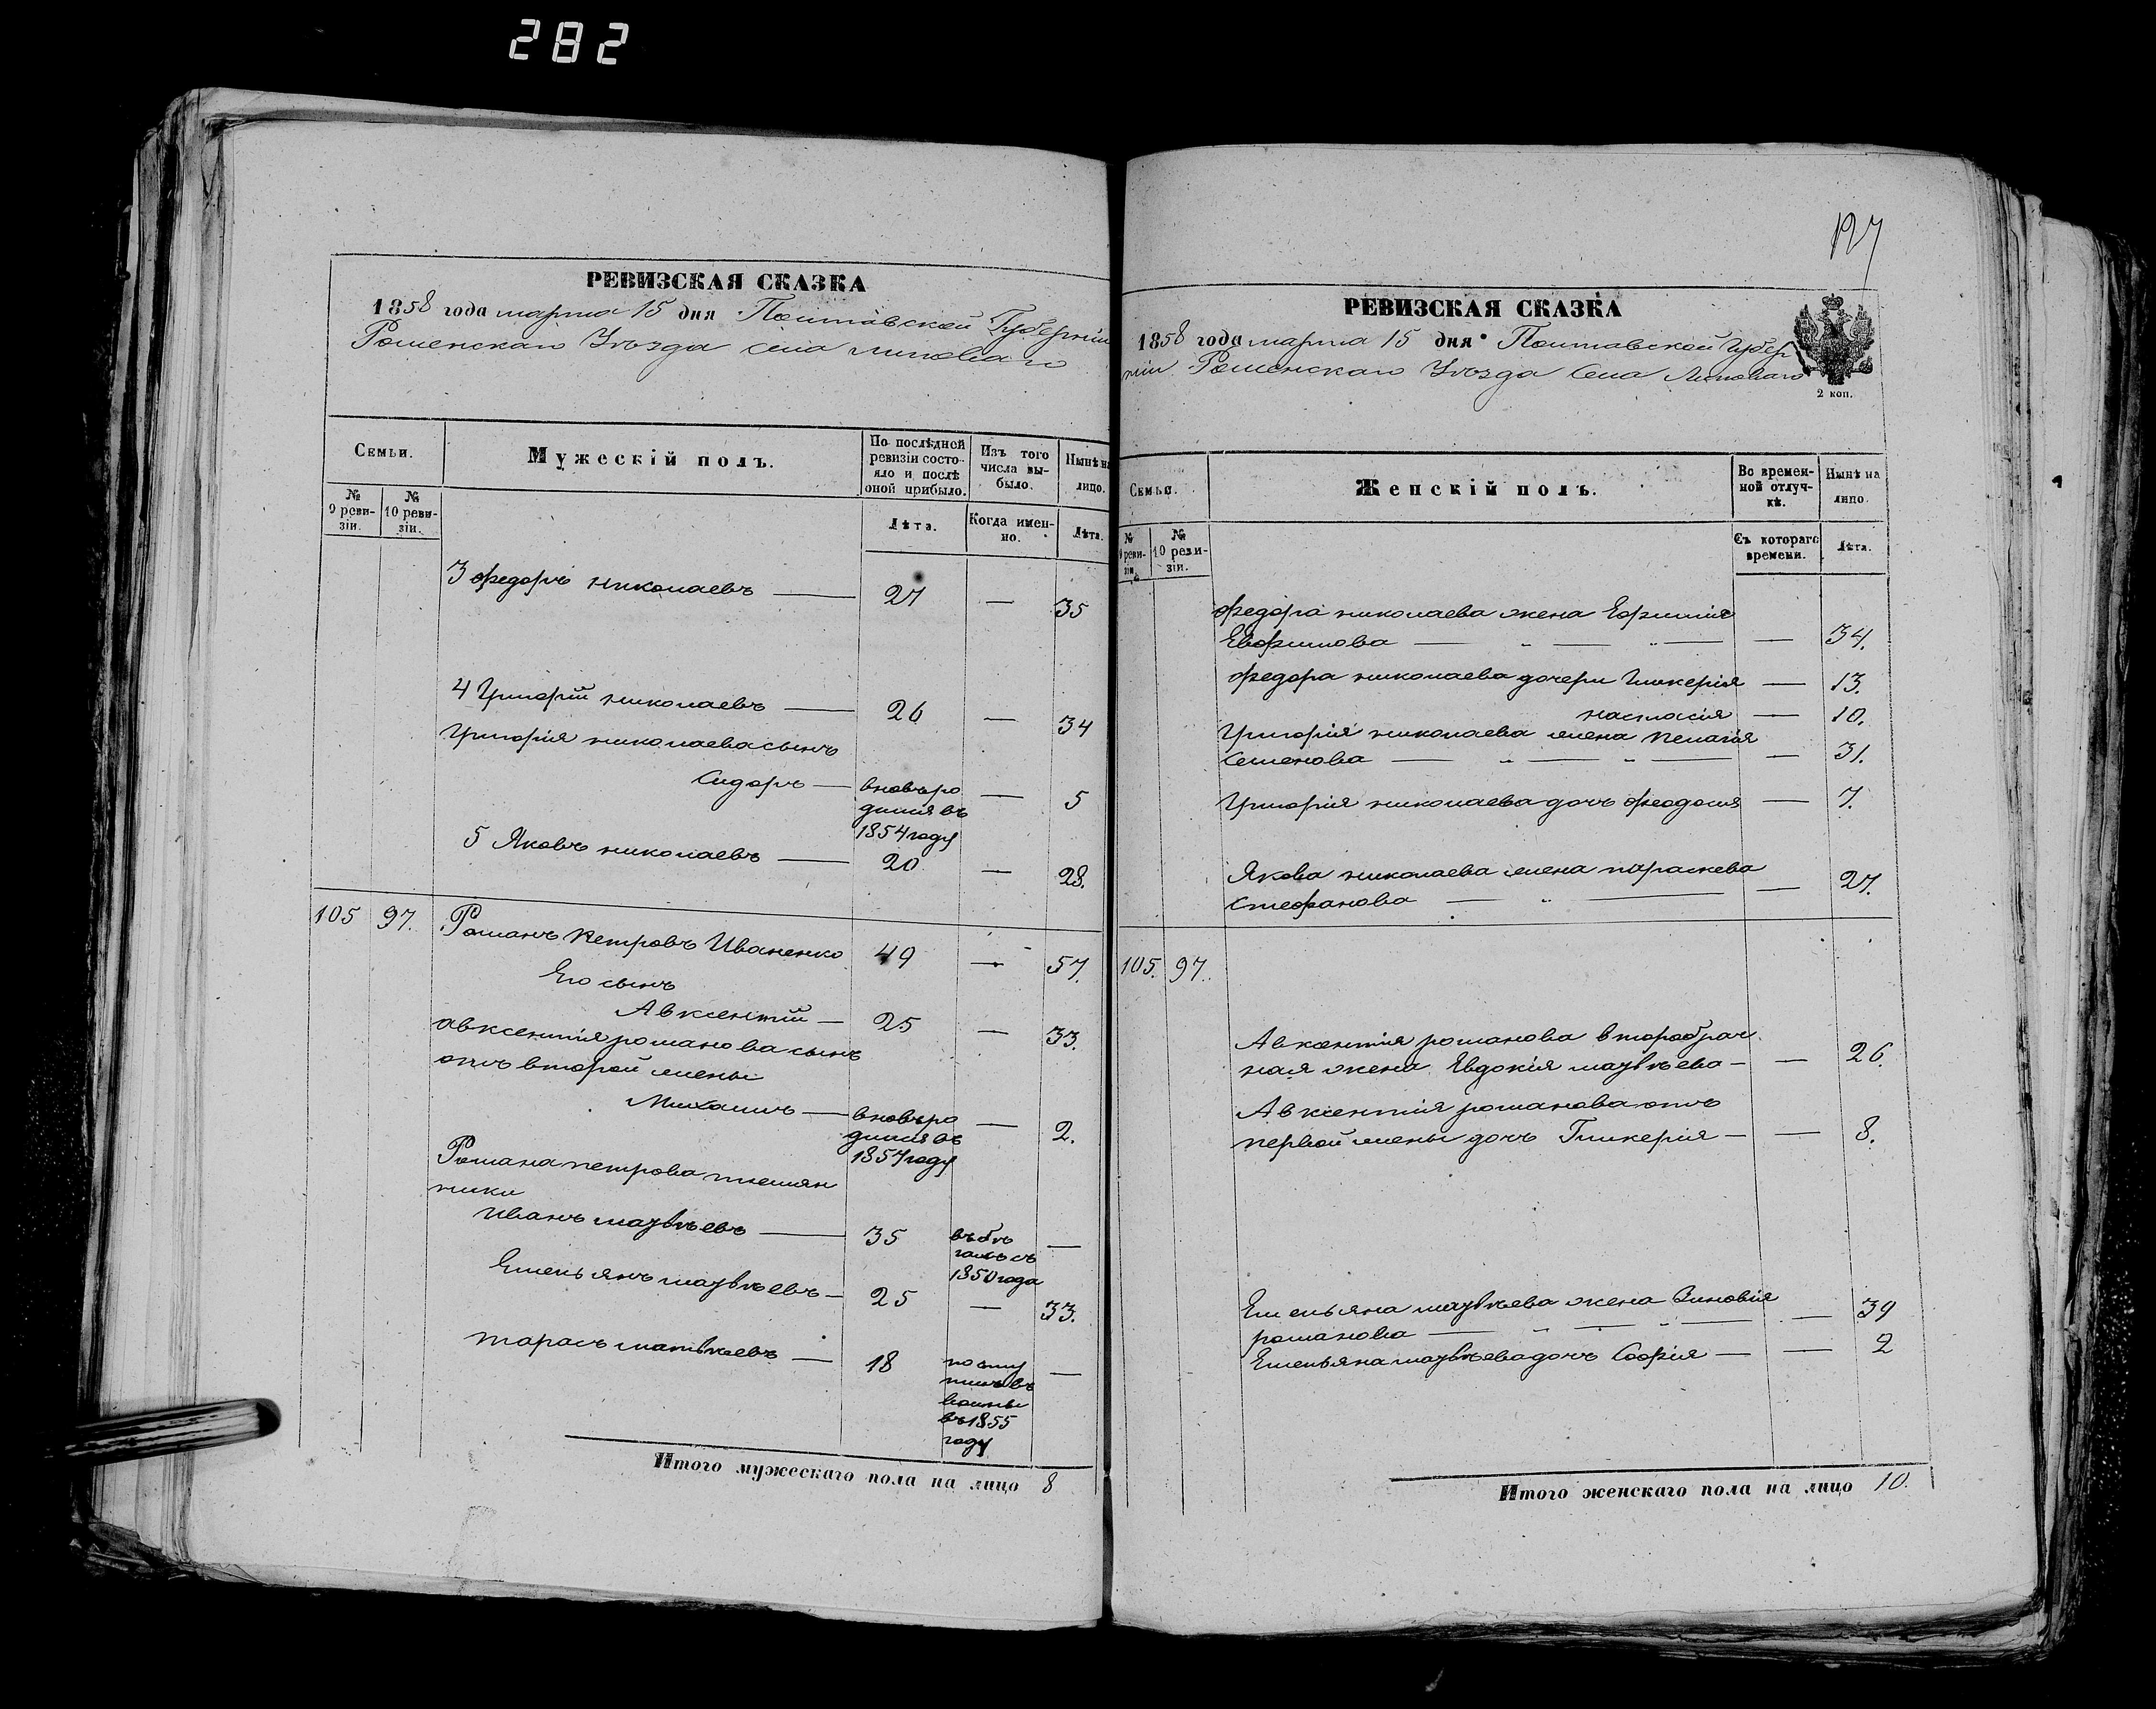 282
РЕВИЗСКАЯ СКАЗКА
1858 года марта 15 дня Полтавской Губерніи
Роменскаго Уѣзда села Липоваго
Семьи.
Мужескій полъ.
По послѣдней ревизіи состояло и послѣ оной прибыло.
Изъ того числа выбыло.
Нынѣ на лицо.
№ 9 ревизіи.
№ 10 ревизіи.
Лѣта.
Когда именно.
Лѣта.
3 Федоръ николаевъ — 27 — 35
4 Григорій николаевъ — 26 — 34
Григорія николаева сынъ
Сидоръ — вновь ро — 5
дился въ
1854 году
5 Яковъ николаевъ — 20 — 28.
105 97. Романъ Петровъ Иваненко 49 — 57.
Его сынъ
Авксентій — 25 — 33.
авксентія романова сынъ
отъ второй жены
Михаилъ — вновь ро — 2.
дился въ
1857 году
Романа петрова племян
ники
Иванъ матвѣевъ — 35 въ бѣ —
гахъ съ
1850 года
Емельянъ матвѣевъ — 25 — 33.
тарасъ матвѣевъ — 18 посту —
пилъ въ
воины
въ 1855
году
Итого мужескаго пола на лицо 8
127
РЕВИЗСКАЯ СКАЗКА
1858 года марта 15 дня Полтавской Губер
ніи Роменскаго Уѣзда Села Липоваго
2 коп.
Семьи.
Женскій полъ.
Во временной отлучкѣ.
Нынѣ на лицо.
№ 9 ревизіи.
№ 10 ревизіи.
Съ котораго времени.
Лѣта.
Федора николаева жена
Евфимова — „ — „ — — 34.
Федора николаева дочери Гликерія — 13.
настасія — 10.
Григорія николаева жена пелагія
Семенова — „ — „ — — 31.
Григорія николаева дочь феодосія — 7.
Якова николаева жена параскева
стефанова — „ — — 27.
105. 97.
Авксентія романова второбрач
ная жена Евдокія матвѣева — — 26.
Авксентія романова отъ
первой жены дочь Гликерія — — 8.
Емельяна матвѣева жена Зиновія
романова — „ — „ — — 39
Емельяна матвѣева дочь Софія — — 2
Итого женскаго пола на лицо 10.